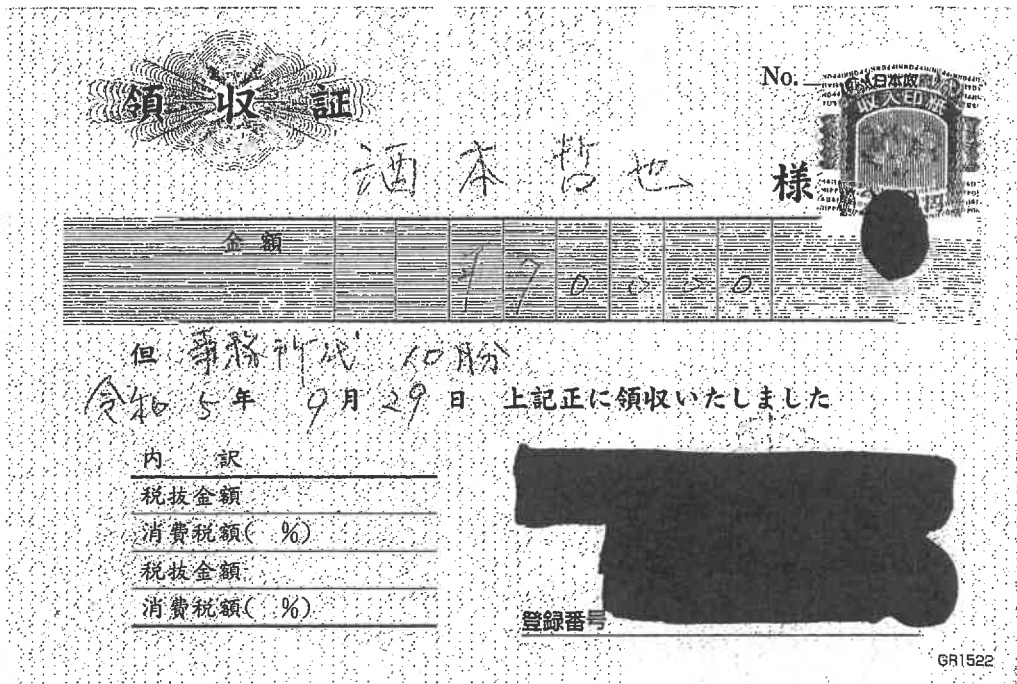 領収証
No.
収入印紙
円
酒本哲也 様
金額 ¥70000
但 事務所代 10月分
令和5年 9月29日 上記正に領収いたしました
内 訳
税抜金額
消費税額( %)
税抜金額
消費税額( %)
登録番号
GR1522